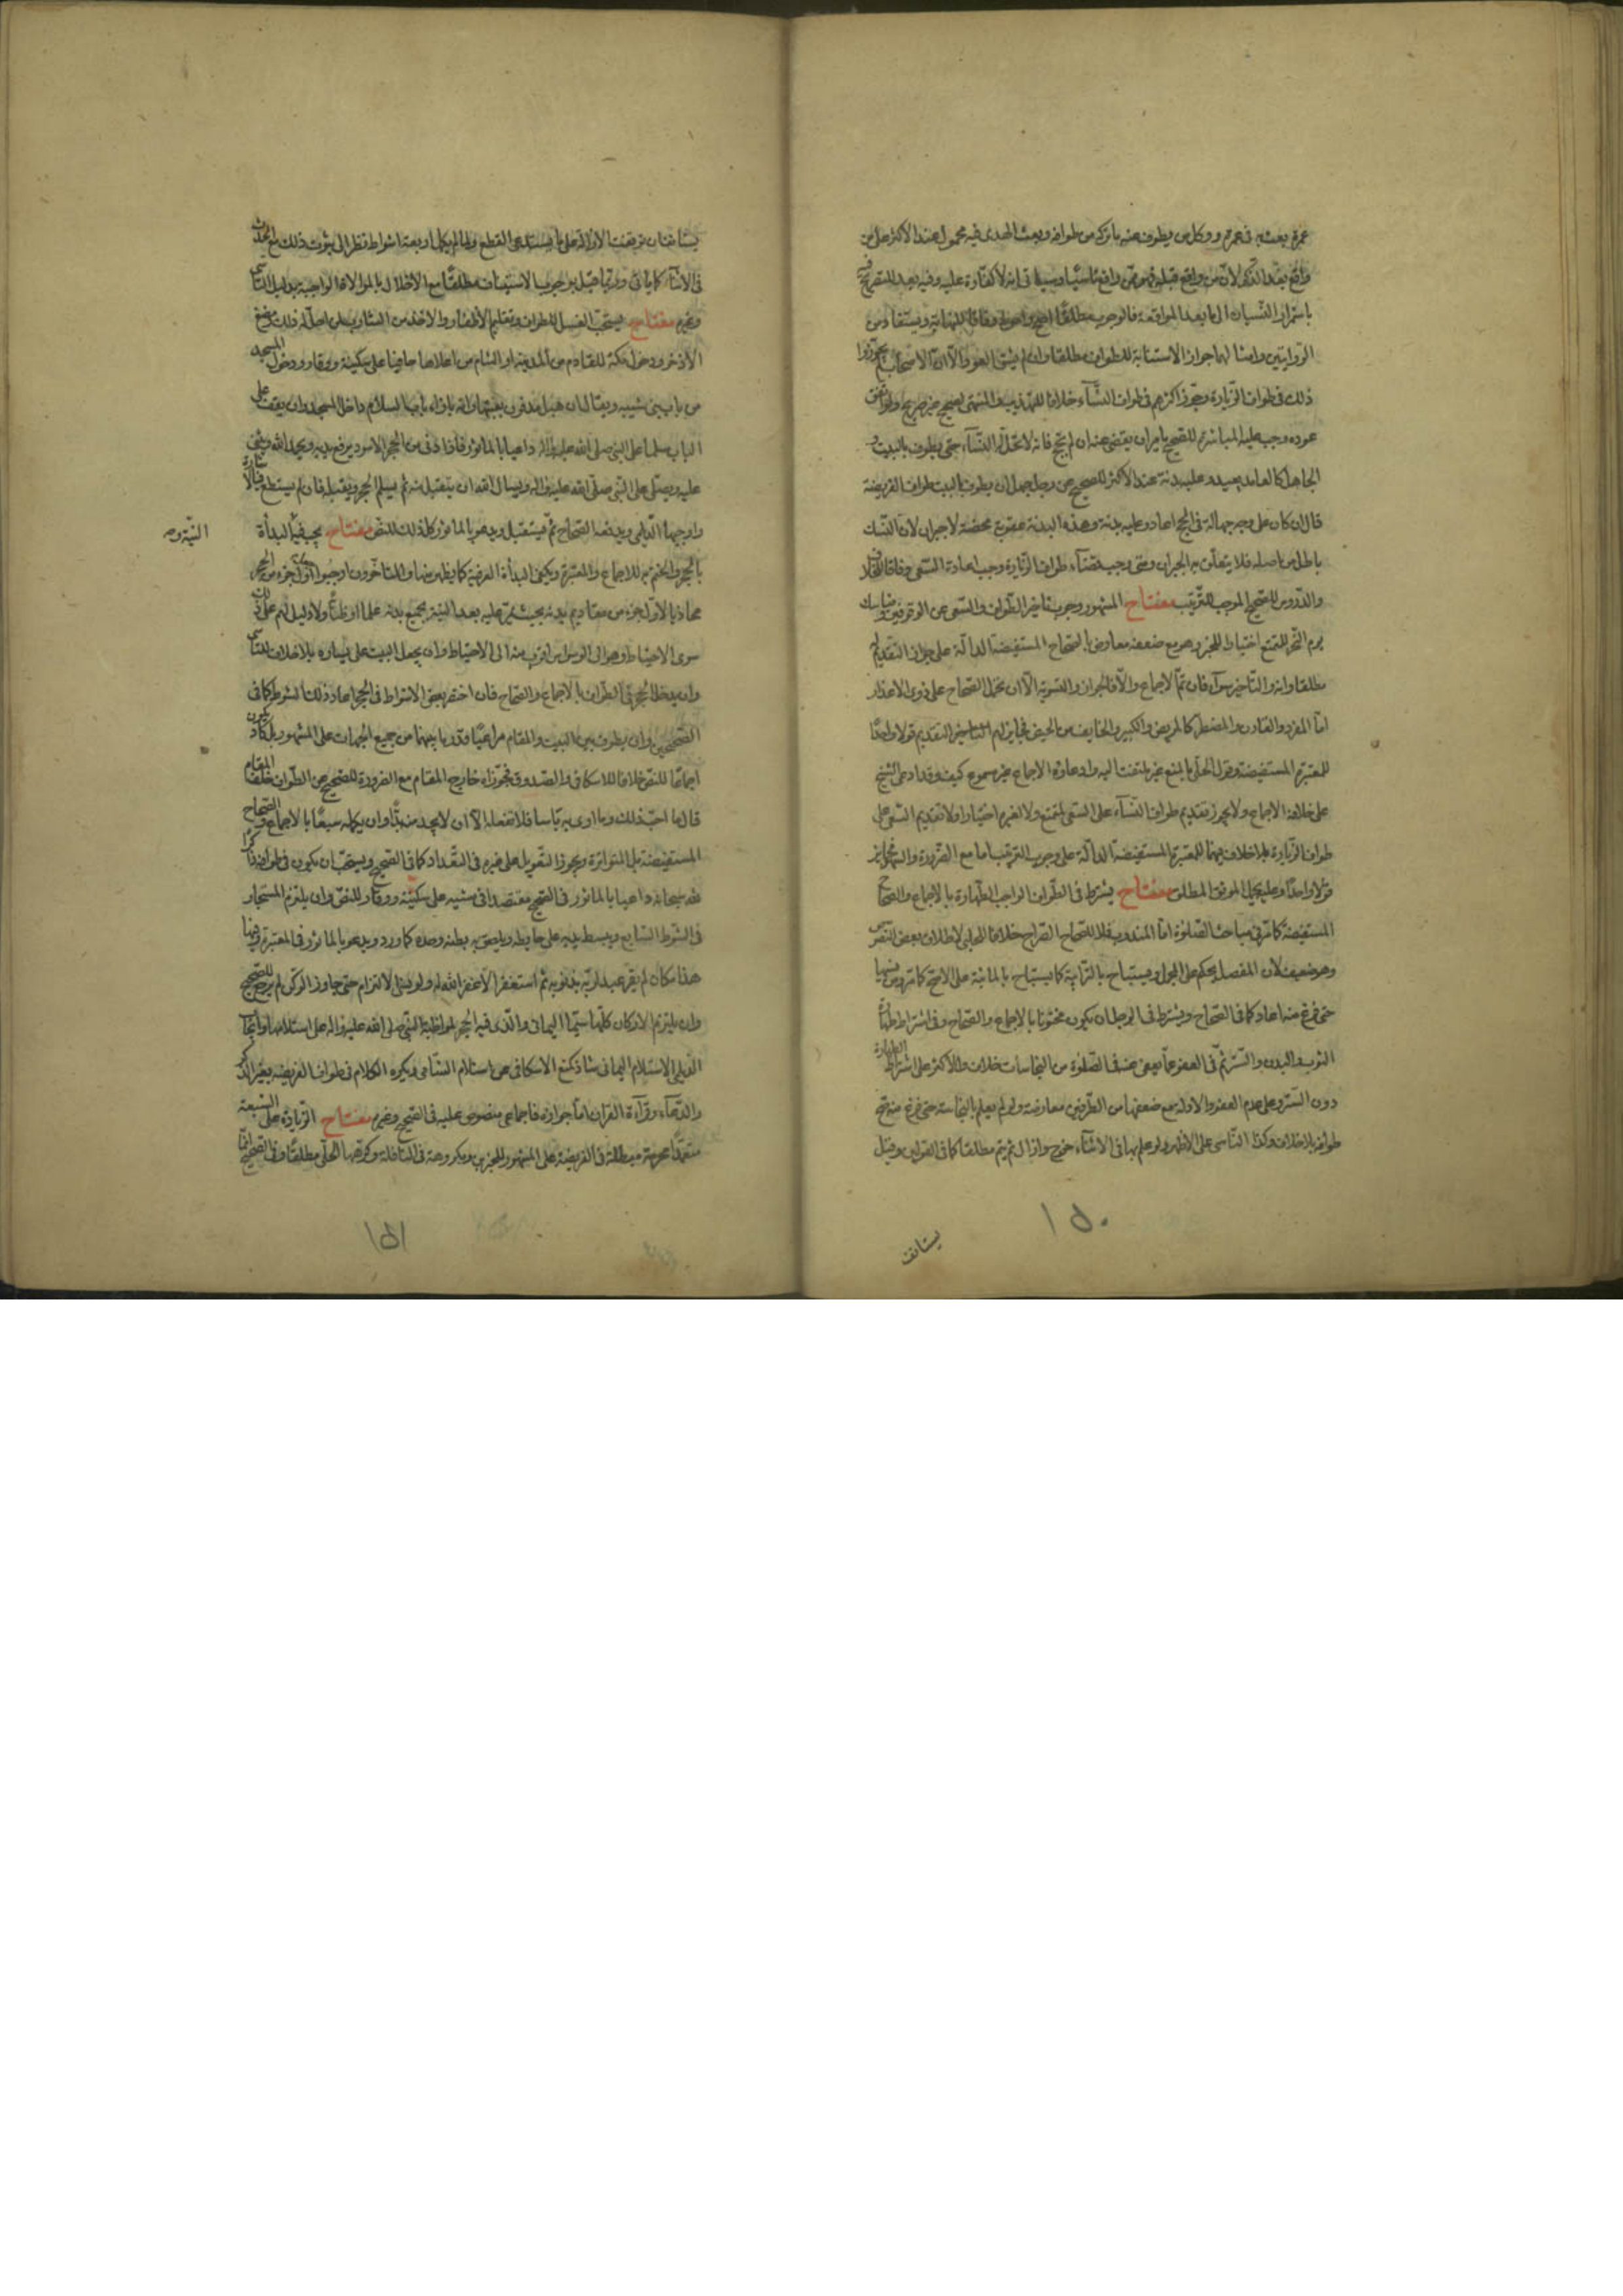 عمرة بعث به في عمرة ووكل من يطوف عنه ما تركه من طوافه وبعث الهدى فيه محمول عند الأكثر على من
واقع بعد الذكر لأن من واقع قبله فهو ممن واقع ناسيا وسيأتي انه لا كفارة عليه وفيه بعد للتصريح فيه
باستمرار النسيان الى ما بعد المواقعة فالوجوب مطلقا اصح واحوط وفاقا للنهاية ويستفاد من
الروايتين وامثالهما جواز الاستنابة للطواف مطلقا وان لم يشق العود الا ان الاصحاب لم يجوزوا
ذلك في طواف الزيارة وجوز اكثرهم في طواف النساء خلافا للتهذيب والمنتهى لصحيح غير صريح ولو اتفق
عوده وجب عليه المباشرة للصحيح يأمر ان يقضى عنه ان لم يحج فانه لا تحل له النساء حتى يطوف بالبيت و
الجاهل كالعامد يعيد وعليه بدنة عند الاكثر للصحيح عن رجل جهل ان يطوف بالبيت طواف الفريضة
قال ان كان على وجه جهالة في الحج اعاد وعليه بدنة وهذه البدنة عقوبة محضة لا جبران لأن النسك
باطل من اصله فلا يتعلق به الجبران ومتى وجب قضاء طواف الزيارة وجب اعادة السعى وفاقا للخلاف
والدروس للصحيح الموجب للترتيب مفتاح المشهور وجوب تأخير الطواف والسعى عن الوقوفين ومناسك
يوم النحر للمتمتع اختيارا للخبر وهو مع ضعفه معارض بالصحاح المستفيضة الدالة على جواز التقديم له
مطلقا وانه والتأخير سواء فان تم الاجماع والا فالجواز والتسوية الا ان تحمل الصحاح على ذوى الاعذار
اما المفرد والقارن والمضطر كالمريض والكبير والخايف من الحيض فجايز لهم التأخير والتقديم قولا واحدا
للمعتبرة المستفيضة وقول الحلى بالمنع غير ملتفت اليه وادعاؤه الاجماع غير مسموع كيف وقد ادعى الشيخ
على خلافه الاجماع ولا يجوز تقديم طواف النساء على السعى لمتمتع ولا لغيره اختيارا ولا تقديم السعى على
طواف الزيارة بلا خلاف فيهما للمعتبرة المستفيضة الدالة على وجوب الترتيب اما مع الضرورة والسهو فجايز
قولا واحدا وعليه يحمل الموثق المطلق مفتاح يشترط في الطواف الواجب الطهارة بالاجماع والصحاح
المستفيضة كما مر في مباحث الصلوة اما المندوب فلا للصحاح الصراح خلافا للحلبى لاطلاق بعض النصوص
وهو ضعيف لأن المفصل يحكم على المجمل ويستباح بالترابية كما يستباح بالمائية على الاصح كما مر ومن نسيها
حتى فرغ منه اعاد كما في الصحاح ويشترط في الرجل ان يكون مختونا بالاجماع والصحاح وفى اشتراط طهارة
الثوب والبدن والستر ثم في العفو عما يعفى عنه في الصلوة من النجاسات خلاف والاكثر على اشتراط الطهارة
دون الستر وعلى عدم العفو والادلة مع ضعفها من الطرفين معارضة ولو لم يعلم بالنجاسة حتى فرغ منه صح
طوافه بلا خلاف وكذا الناسى على الاظهر ولو علم بها في الاثناء خرج وازال ثم يتم مطلقا كما في القوانين وقيل
يستأنف
١٥٠
يستأنف ان توقفت الازالة على ما يستدعى القطع ولما يكمل اربعة اشواط نظرا الى ثبوت ذلك مع الحدث
في الاثناء كما يأتي وربما قيل بوجوب الاستيناف مطلقا مع الاخلال بالموالاة الواجبة بدليل التأسى
وغيره مفتاح يستحب الغسل للطواف وتقليم الاظفار والاخذ من الشارب من اجل له ذلك ومضغ
الاذخر ودخول مكة للقادم من المدينة او الشام من اعلاها حافيا على سكينة ووقار ودخول المسجد
من باب بنى شيبه ويقال ان هبل مدفون بعتبتها وانه بازاء باب السلام داخل المسجد وان يقف على
الباب مسلما على النبى صلى الله عليه واله داعيا بالمأثور فاذا دنى من الحجر الاسود يرفع يديه ويحمد الله ويثنى
عليه ويصلى على النبى صلى الله عليه واله ويسأل الله ان يتقبل منه ثم يسلم الحجر ويقبله فان لم يستطع فبالاشارة
واوجبها الديلمى ويدفعه الصحاح ثم يستقبل ويدعو بالمأثور كل ذلك للنص مفتاح يجب فيه البدأة
النية وصح
بالحجر والختم به للاجماع والمعتبرة ويكفى البدأة العرفية كما يظهر منها والمتأخرون اوجبوا كون اول جزء من الحجر
محاذيا لاول جزء من مقاديم بدنه بحيث يمر عليه بعد النية بجميع بدنه علما او ظنا ولا دليل لهم على ذلك
سوى الاحتياط وهو الى الوسواس اقرب منه الى الاحتياط وان يجعل البيت على يساره بلا خلاف للتأسى
وان يدخل الحجر في الطواف بالاجماع والصحاح فان اختصر بعض الاشواط في الحجر اعاد ذلك الشوط كما في
الصحيحين وان يطوف بين البيت والمقام مراعيا قدر ما بينهما من جميع الجهات على المشهور بل كاد يكون
اجماعا للنص خلافا للاسكافى والصدوق فجوزاه خارج المقام مع الضرورة للصحيح عن الطواف خلف المقام
قال ما احب ذلك وما ارى به بأسا فلا تفعله الا ان لا تجد منه بدا وان يكمله سبعا بالاجماع والصحاح
المستفيضة بل المتواترة ويجوز التعويل على غيره في التعداد كما في الصحيح ويستحب ان يكون في طوافه ذاكرا
لله سبحانه داعيا بالمأثور في الصحيح مقتصدا في مشيه على سكينة ووقار للنص وان يلتزم المستجار
في الشوط السابع ويبسط يديه على حايطه ويلصق به بطنه وخده كما ورد ويدعو بالمأثور في المعتبرة وفيها
هذا مكان لم يقر عبد لربه بذنوبه ثم استغفر الا غفر الله له ولو نسى الالتزام حتى جاوز الركن لم يرجع للصحيح
وان يلتزم الاركان كلها سيما اليمانى والذى فيه الحجر لمواظبة النبى صلى الله عليه واله على استلامهما واوجب
الديلمى الاستلام اليمانى شاذ كمنع الاسكافى عن استلام الشامى ويكره الكلام في طواف الفريضة بغير الذكر
والدعاء وقراءة القرآن اما جوازه فاجماعى منصوص عليه في الصحيح وغيره مفتاح الزيادة على السبعة
متعمدا محرمة مبطلة في الفريضة على المشهور للخبرين ومكروهة في النافلة وكرهها الحلى مطلقا وفى الصحيح انما
١٥١